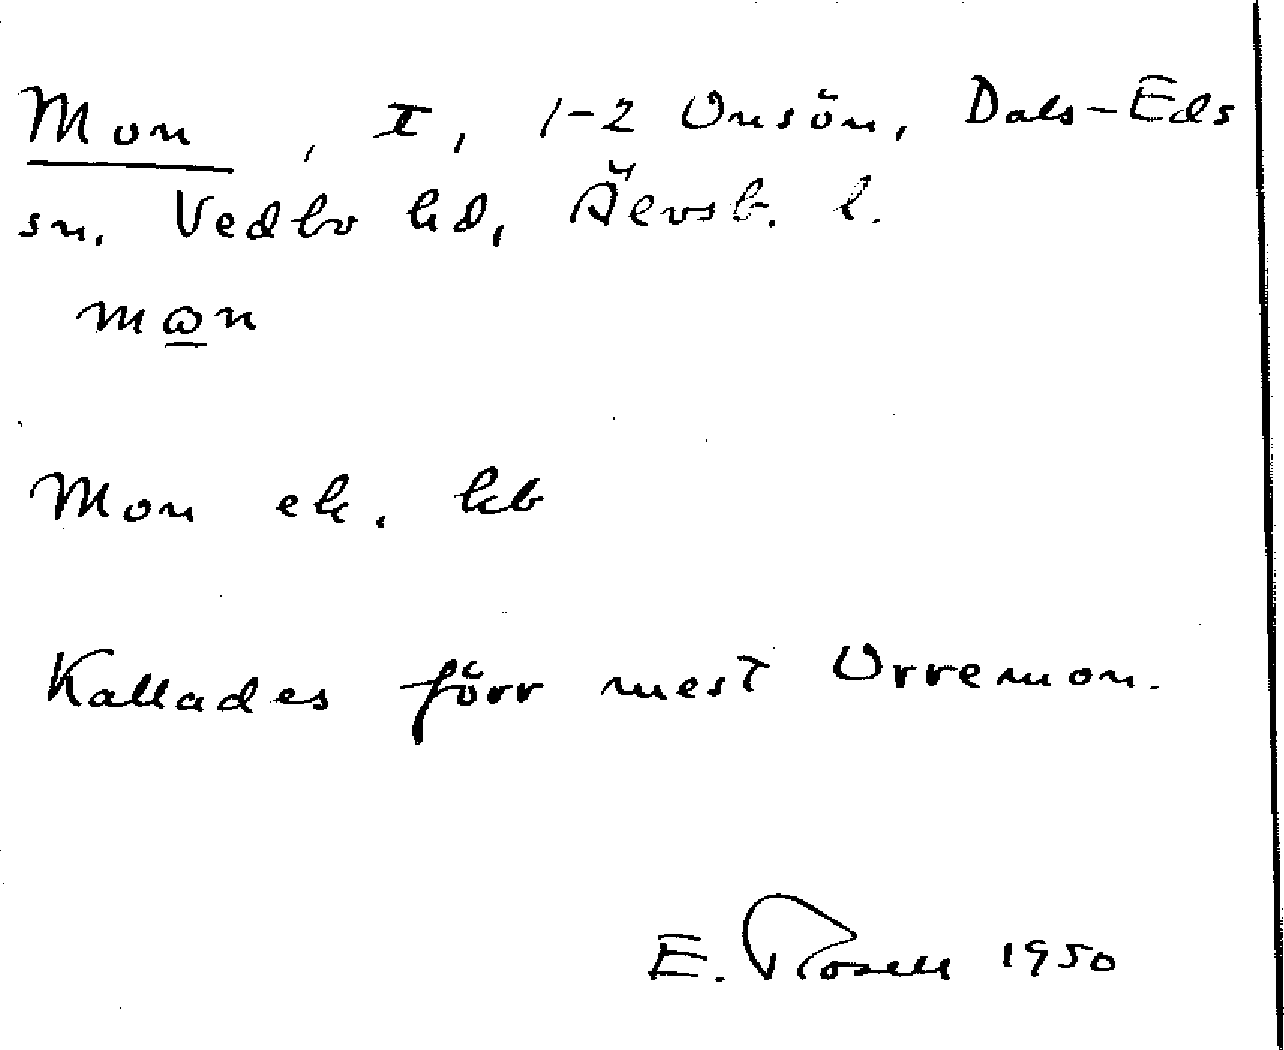 Mon, I, 1-2 Onsön, Dals-Eds
sn. Vedbo hd, Älvsb. l.
mωn
Mon ek. kb
Kallades förr mest Orremon.
E. Rosell 1950